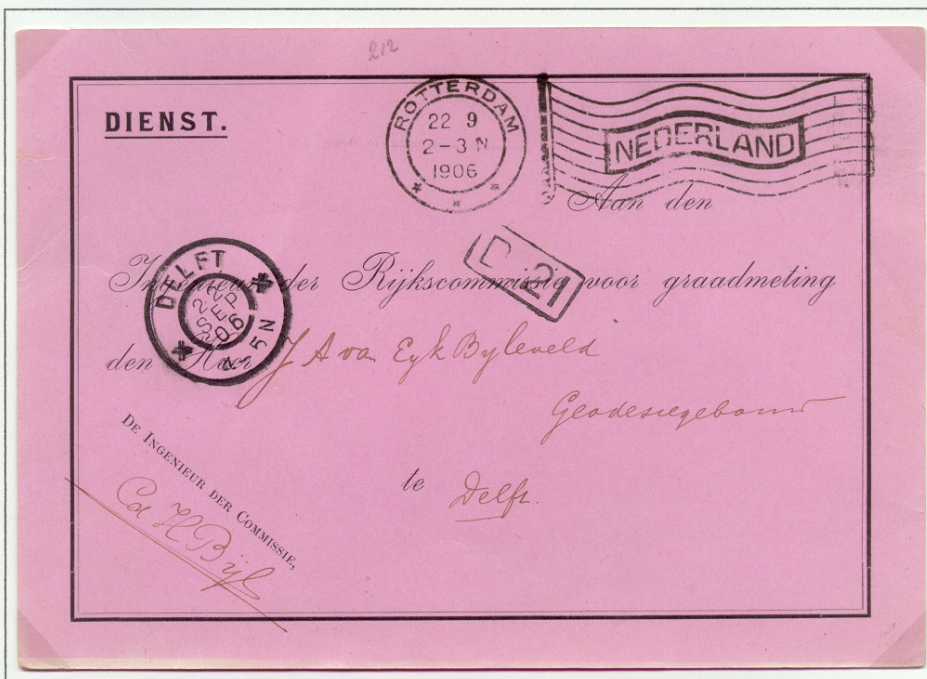 212
DIENST.
ROTTERDAM
22 9
2-3 N
1906
NEDERLAND
Aan den
Ingenieur der Rijkscommissie voor graadmeting
D 21
DELFT
22 SEP 06
4-5N
den Heer J A van Eyk Byleveld
Geodesiegebouw
te Delft.
DE INGENIEUR DER COMMISSIE,